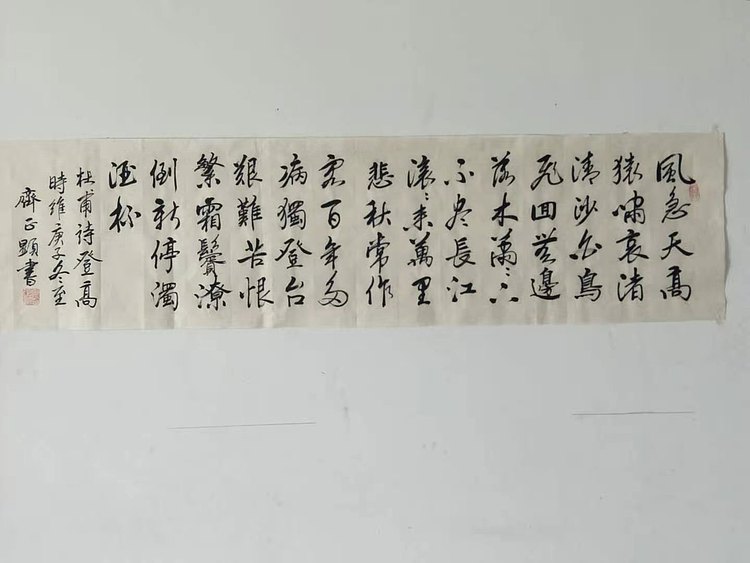 風急天高
猿嘯哀渚
清沙白鳥
飛回無邊
落木蕭〻下
不盡長江
滚〻来萬里
悲秋常作
客百年多
病獨登台
艱難苦恨
繁霜鬢潦
倒新停濁
酒杯
杜甫詩登高
時維庚子冬至
齊正顯書